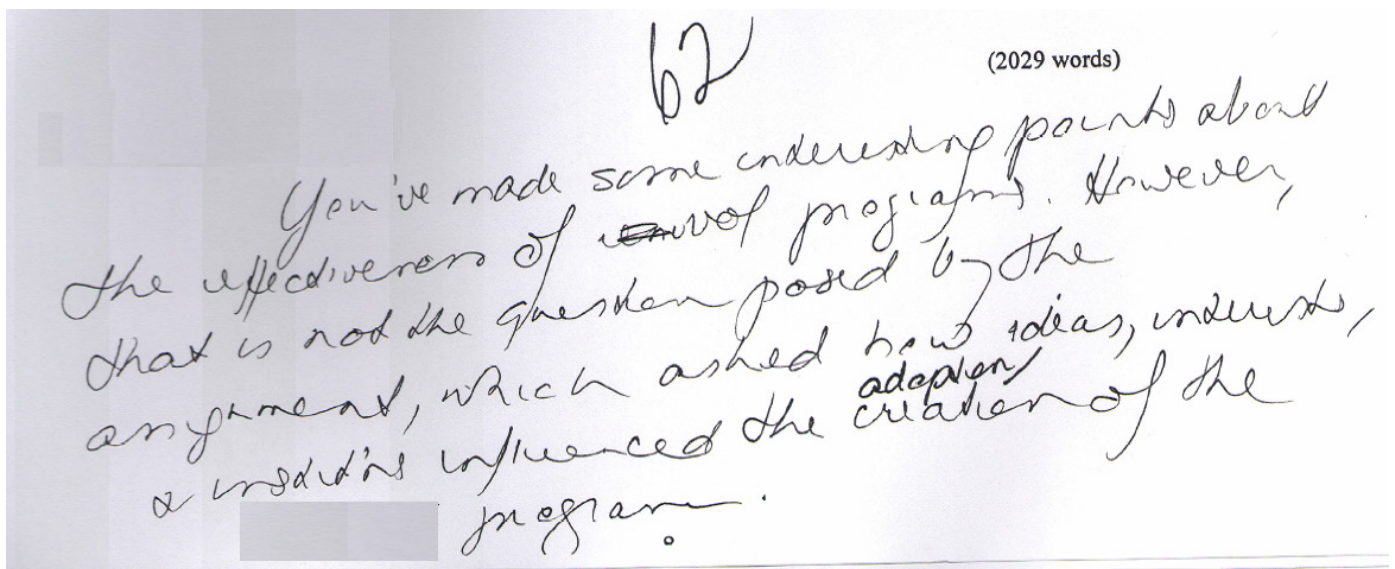 62
(2029 words)
You've made some interesting points about
the effectiveness of vol programs. However,
that is not the question posed by the
assignment, which asked how ideas, interests,
adoption/
& instit'ns influenced the creation of the
program.